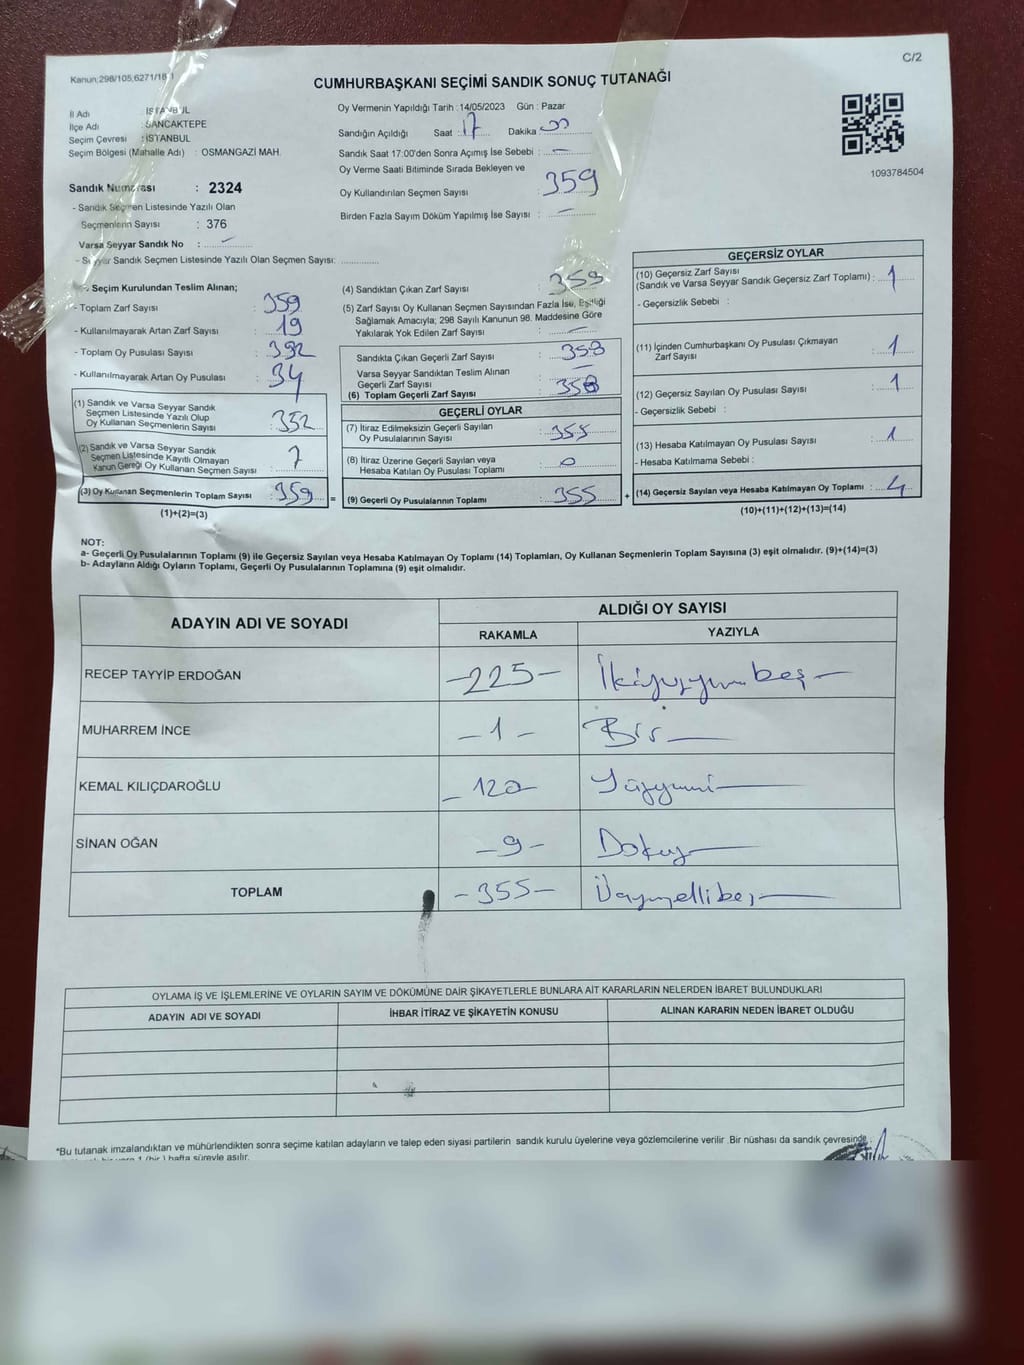 C/2
Kanun:298/105,6271/18
CUMHURBAŞKANI SEÇİMİ SANDIK SONUÇ TUTANAĞI
İl Adı : İSTANBUL
İlçe Adı : SANCAKTEPE
Seçim Çevresi : İSTANBUL
Seçim Bölgesi (Mahalle Adı) : OSMANGAZİ MAH.
Sandık Numarası : 2324
- Sandık Seçmen Listesinde Yazılı Olan
Seçmenlerin Sayısı : 376
Varsa Seyyar Sandık No : -
- Seyyar Sandık Seçmen Listesinde Yazılı Olan Seçmen Sayısı:
Oy Vermenin Yapıldığı Tarih : 14/05/2023 Gün : Pazar
Sandığın Açıldığı Saat : 17 Dakika : 00
Sandık Saat 17:00'den Sonra Açımış İse Sebebi : -
Oy Verme Saati Bitiminde Sırada Bekleyen ve
Oy Kullandırılan Seçmen Sayısı : 359
Birden Fazla Sayım Döküm Yapılmış İse Sayısı : -
1093784504
- Seçim Kurulundan Teslim Alınan;
- Toplam Zarf Sayısı : 359
- Kullanılmayarak Artan Zarf Sayısı : 19
- Toplam Oy Pusulası Sayısı : 392
- Kullanılmayarak Artan Oy Pusulası : 34
(1) Sandık ve Varsa Seyyar Sandık
Seçmen Listesinde Yazılı Olup
Oy Kullanan Seçmenlerin Sayısı : 352
(2) Sandık ve Varsa Seyyar Sandık
Seçmen Listesinde Kayıtlı Olmayan
Kanun Gereği Oy Kullanan Seçmen Sayısı : 7
(3) Oy Kullanan Seçmenlerin Toplam Sayısı : 359 =
(1)+(2)=(3)
(4) Sandıktan Çıkan Zarf Sayısı : 359
(5) Zarf Sayısı Oy Kullanan Seçmen Sayısından Fazla İse, Eşitliği
Sağlamak Amacıyla; 298 Sayılı Kanunun 98. Maddesine Göre
Yakılarak Yok Edilen Zarf Sayısı : -
Sandıkta Çıkan Geçerli Zarf Sayısı : 358
Varsa Seyyar Sandıktan Teslim Alınan
Geçerli Zarf Sayısı : -
(6) Toplam Geçerli Zarf Sayısı : 358
GEÇERLİ OYLAR
(7) İtiraz Edilmeksizin Geçerli Sayılan
Oy Pusulalarının Sayısı : 355
(8) İtiraz Üzerine Geçerli Sayılan veya
Hesaba Katılan Oy Pusulası Toplamı : 0
(9) Geçerli Oy Pusulalarının Toplamı : 355 +
GEÇERSİZ OYLAR
(10) Geçersiz Zarf Sayısı
(Sandık ve Varsa Seyyar Sandık Geçersiz Zarf Toplamı) : 1
- Geçersizlik Sebebi :
(11) İçinden Cumhurbaşkanı Oy Pusulası Çıkmayan
Zarf Sayısı : 1
(12) Geçersiz Sayılan Oy Pusulası Sayısı : 1
- Geçersizlik Sebebi :
(13) Hesaba Katılmayan Oy Pusulası Sayısı : 1
- Hesaba Katılmama Sebebi :
(14) Geçersiz Sayılan veya Hesaba Katılmayan Oy Toplamı : 4
(10)+(11)+(12)+(13)=(14)
NOT:
a- Geçerli Oy Pusulalarının Toplamı (9) ile Geçersiz Sayılan veya Hesaba Katılmayan Oy Toplamı (14) Toplamları, Oy Kullanan Seçmenlerin Toplam Sayısına (3) eşit olmalıdır. (9)+(14)=(3)
b- Adayların Aldığı Oyların Toplamı, Geçerli Oy Pusulalarının Toplamına (9) eşit olmalıdır.
ADAYIN ADI VE SOYADI ALDIĞI OY SAYISI
RAKAMLA YAZIYLA
RECEP TAYYİP ERDOĞAN -225- İkiyüzyirmibeş -
MUHARREM İNCE - 1 - Bir -
KEMAL KILIÇDAROĞLU - 120 - Yüzyirmi -
SİNAN OĞAN - 9 - Dokuz -
TOPLAM - 355 - Üçyüzellibeş -
OYLAMA İŞ VE İŞLEMLERİNE VE OYLARIN SAYIM VE DÖKÜMÜNE DAİR ŞİKAYETLERLE BUNLARA AİT KARARLARIN NELERDEN İBARET BULUNDUKLARI
ADAYIN ADI VE SOYADI İHBAR İTİRAZ VE ŞİKAYETİN KONUSU ALINAN KARARIN NEDEN İBARET OLDUĞU
*Bu tutanak imzalandıktan ve mühürlendikten sonra seçime katılan adayların ve talep eden siyasi partilerin sandık kurulu üyelerine veya gözlemcilerine verilir .Bir nüshası da sandık çevresinde
1 (bir ) hafta süreyle asılır.